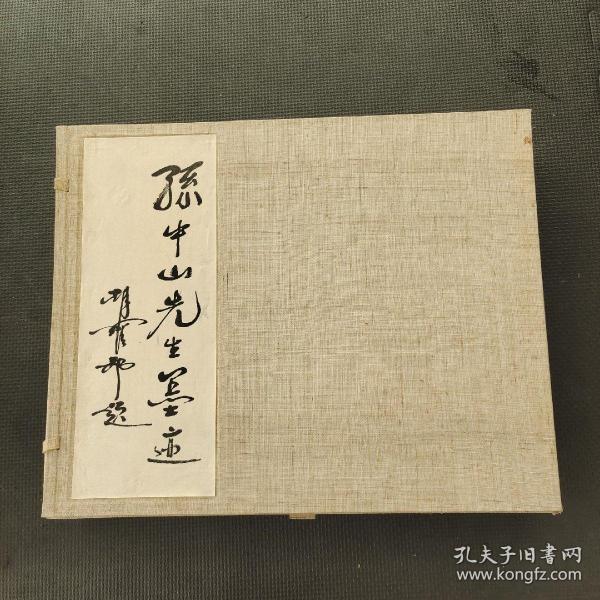 孫中山先生墨迹
胡耀邦题
孔夫子旧書网
www.kongfz.com